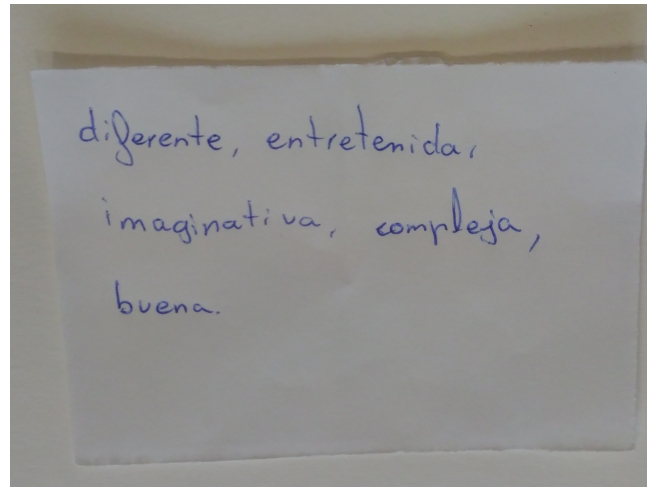 diferente, entretenida,
imaginativa, compleja,
buena.